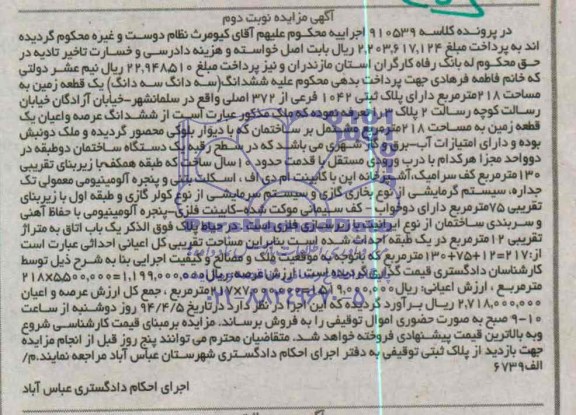 آگهی مزایده نوبت دوم
در پرونده کلاسه ۹۱۰۵۳۹ اجراییه محکوم علیهم آقای کیومرث نظام دوست و غیره محکوم گردیده
اند به پرداخت مبلغ ۲,۲۰۳,۶۱۷,۱۲۴ ریال بابت اصل خواسته و هزینه دادرسی و خسارت تاخیر تادیه در
حق محکوم له بانک رفاه کارگران استان مازندران و نیز پرداخت مبلغ ۲۲,۹۴۸,۵۱۰ ریال نیم عشر دولتی
که خانم فاطمه فرهادی جهت پرداخت بدهی محکوم علیه ششدانگ(سه دانگ سه دانگ) یک قطعه زمین به
مساحت ۲۱۸مترمربع دارای پلاک ثبتی ۱۰۴۲ فرعی از ۳۷۲ اصلی واقع در سلمانشهر-خیابان آزادگان خیابان
رسالت کوچه رسالت ۲ پلاک بوده که ملک مذکور عبارت است از ششدانگ عرصه واعیان یک
قطعه زمین به مساحت ۲۱۸مترمربع مشتمل بر ساختمان که با دیوار بلوکی محصور گردیده و ملک دونبش
بوده و دارای امتیازات آب-برق و گاز شهری می باشد که در سطح رقبه یک دستگاه ساختمان دوطبقه در
دوواحد مجزا هرکدام با درب ورودی مستقل با قدمت حدود ۱۰سال ساخت که طبقه همکف با زیربنای تقریبی
۱۳۰مترمربع کف سرامیک،آشپزخانه اپن با کابینت ام دی اف ، اسکلت بتنی و پنجره آلومینیومی معمولی تک
جداره، سیستم گرمایشی از نوع بخاری گازی و سیستم سرمایشی از نوع کولر گازی و طبقه اول با زیربنای
تقریبی ۷۵مترمربع دارای دوخواب- کف سیمانی موکت شده-کابینت فلزی-پنجره آلومینیومی با حفاظ آهنی
و سربندی ساختمان از نوع ایرانیت با زیرسازی فلزی است. در حیاط پلاک فوق الذکر یک باب اتاق به متراژ
تقریبی ۱۲مترمربع در یک طبقه احداث شده است بنابراین مساحت تقریبی کل اعیانی احداثی عبارت است
از:۲۱۷=۱۲+۷۵+۱۳۰مترمربع که باتوجه به موقعیت ملک و مصالح و کیفیت اجرایی بنا به شرح ذیل توسط
کارشناسان دادگستری قیمت گذاری گردیده است. ارزش عرصه ریال ۱,۱۹۹,۰۰۰,۰۰۰=۵,۵۰۰,۰۰۰×۲۱۸
مترمربع ، ارزش اعیانی: ریال ۱,۵۱۹,۰۰۰,۰۰۰=۷,۰۰۰,۰۰۰×۲۱۷مترمربع ، جمع کل ارزش عرصه و اعیان
۲,۷۱۸,۰۰۰,۰۰۰ ریال برآورد گردیده که این اجرا در نظر دارد در تاریخ ۹۴/۴/۵ روز دوشنبه از ساعت
۱۰-۹ صبح به صورت حضوری اموال توقیفی را به فروش برساند. مزایده برمبنای قیمت کارشناسی شروع
وبه بالاترین قیمت پیشنهادی فروخته خواهد شد. متقاضیان محترم می توانند پنج روز قبل از انجام مزایده
جهت بازدید از پلاک ثبتی توقیفی به دفتر اجرای احکام دادگستری شهرستان عباس آباد مراجعه نمایند./م
الف۶۷۳۹
اجرای احکام دادگستری عباس آباد